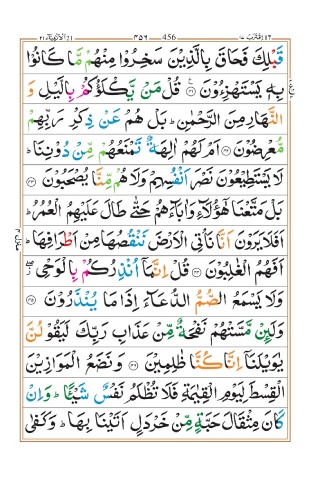 اقترب ١٧ ٤٥٦ 456 الانبيآء ٢١
قَبْلِكَ فَحَاقَ بِالَّذِيْنَ سَخِرُوْا مِنْهُمْ مَّا كَانُوْا
بِهٖ يَسْتَهْزِءُوْنَ ۝٤١ قُلْ مَنْ يَّكْلَؤُكُمْ بِالَّيْلِ وَ
النَّهَارِ مِنَ الرَّحْمٰنِ ؕ بَلْ هُمْ عَنْ ذِكْرِ رَبِّهِمْ
مُّعْرِضُوْنَ ۝٤٢ اَمْ لَهُمْ اٰلِهَةٌ تَمْنَعُهُمْ مِّنْ دُوْنِنَا ؕ
لَا يَسْتَطِيْعُوْنَ نَصْرَ اَنْفُسِهِمْ وَلَا هُمْ مِّنَّا يُصْحَبُوْنَ ۝٤٣
بَلْ مَتَّعْنَا هٰۤؤُلَآءِ وَاٰبَآءَهُمْ حَتّٰى طَالَ عَلَيْهِمُ الْعُمُرُ ؕ
اَفَلَا يَرَوْنَ اَنَّا نَاْتِى الْاَرْضَ نَنْقُصُهَا مِنْ اَطْرَافِهَا ؕ
اَفَهُمُ الْغٰلِبُوْنَ ۝٤٤ قُلْ اِنَّمَاۤ اُنْذِرُكُمْ بِالْوَحْىِ ۖ
وَلَا يَسْمَعُ الصُّمُّ الدُّعَآءَ اِذَا مَا يُنْذَرُوْنَ ۝٤٥
وَلَئِنْ مَّسَّتْهُمْ نَفْحَةٌ مِّنْ عَذَابِ رَبِّكَ لَيَقُوْلُنَّ
يٰوَيْلَنَاۤ اِنَّا كُنَّا ظٰلِمِيْنَ ۝٤٦ وَنَضَعُ الْمَوَازِيْنَ
الْقِسْطَ لِيَوْمِ الْقِيٰمَةِ فَلَا تُظْلَمُ نَفْسٌ شَيْـًٔا ؕ وَاِنْ
كَانَ مِثْقَالَ حَبَّةٍ مِّنْ خَرْدَلٍ اَتَيْنَا بِهَا ؕ وَكَفٰى